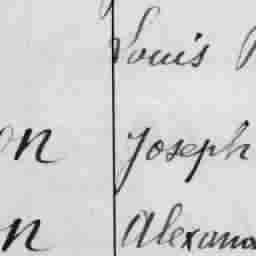 Louis
on Joseph
n Alexand